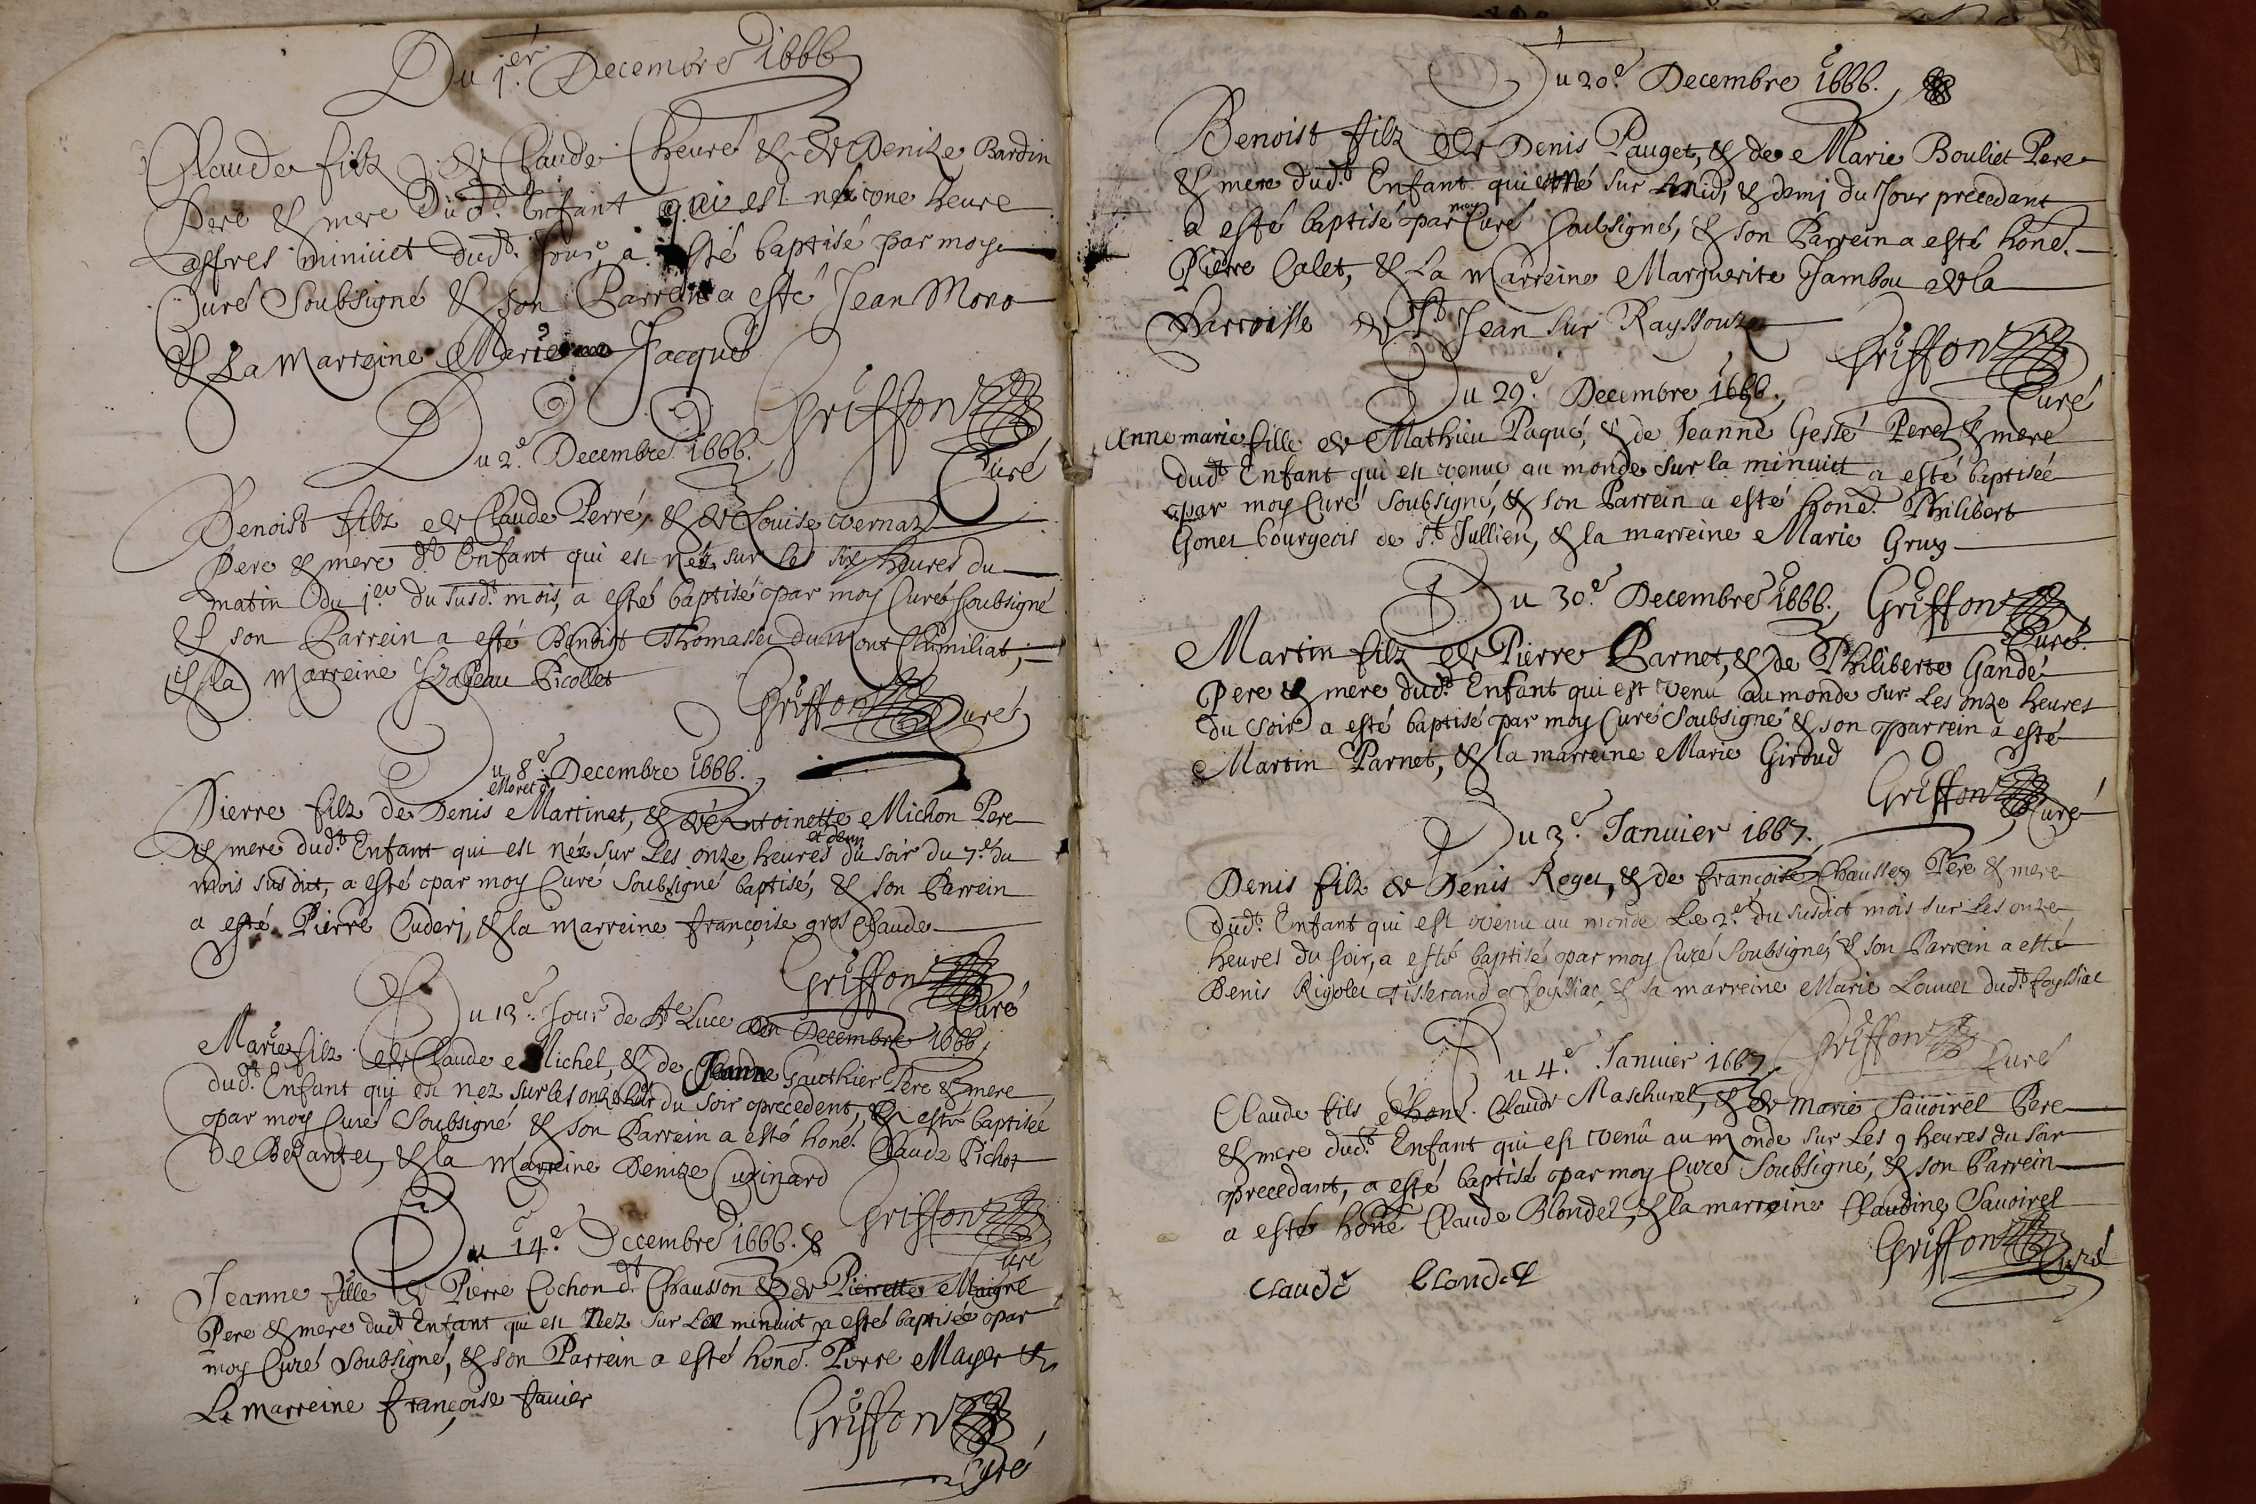 Du 1.er Decembre 1666
Claude filz de Claude Cheuré & de Denize Bardin
Pere & mere dud.t Enfant qui est né une heure
appres minuict dud.t Jour, a esté baptisé par moy
Curé Soubsigné & son Parrein a esté Jean Moro
& La Marreine Marie Jacqué
Griffon
Curé
Du 2.e Decembre 1666.
Benoist filz de Claude Perré, & de Louise vernaz
Pere & mere d.t Enfant qui est néz sur les six heures du
matin du 1.er du susd.t mois, a esté baptisé par moy Curé soubsigné
& son Parrein a esté Benoist Thomasset du Mont Chumiliat,
& la Marreine Izabeau Picollet
Griffon Curé
Du 8.e Decembre 1666.
Moret d.t
Pierre filz de Denis Martinet, & de Antoinette Michon Pere
& mere dud.t Enfant qui est néz sur Les onze heures et demy du soir du 7.e du
mois susdict, a esté par moy Curé soubsigné baptisé, & son Parrein
a esté Pierre Cuderj, & la marreine françoise gros Claude
Griffon
Curé
Du 13.e Jour de Ste Luce en Decembre 1666.
Marie filz de Claude Michel, & de Jeanne Gauthier Pere & mere
dud.t Enfant qui est nez sur les onze heures du soir precedent, & esté baptisée
par moy Curé Soubsigné & son Parrein a esté honé. Claude Pichot
de Bezantet, & la Marreine Denize Cuzinard
Griffon
Curé
Du 14.e Decembre 1666. &
Jeanne fille de Pierre Cochon d.t Chausson & de Pierrette Maigre
Pere & mere dud.t Enfant qui est Nez sur Les minuict a esté baptisée par
moy Curé Soubsigné, & son Parrein a esté honé. Pierre Mayer &
La marreine françoise fauier
Griffon
Curé
Du 20.e Decembre 1666.
Benoist filz de Denis Pauget, & de Marie Bouliet Pere
& mere dud.t Enfant qui est né sur Midi, & demj du Jour precedant
a esté baptisé par moy Curé soubsigné, & son Parrein a esté honé.
Pierre Calet, & La Marreine Marguerite Jambou de la
Parroisse de St Jean sur Rayssouze
Griffon
Curé
Du 29.e Decembre 1666.
Anne marie fille de Mathieu Paqué, & de Jeanne Gesté Pere & mere
dud.t Enfant qui est venue au monde sur la minuict a esté baptisée
par moy Curé soubsigné, & son Parrein a esté honé. Philibert
Gonet bourgeois de s.t Jullien, & la marreine Marie Gruy
Du 30.e Decembre 1666.
Griffon
Curé.
Martin filz de Pierre Parnet, & de Philiberte Gandé
Pere & mere dud.t Enfant qui est venu au monde sur Les onze heures
du soir a esté baptisé par moy Curé Soubsigné & son parrein a esté
Martin Parnet, & la marreine Marie Giroud
Griffon
Curé
Du 3.e Januier 1667.
Denis filz de Denis Royet, & de françoise Chaussey Pere & mere
dud.t Enfant qui est venu au monde Le 2.e du susdict mois sur Les onze
heures du soir, a esté baptisé par moy Curé Soubsigné, & son Parrein a esté
Denis Rigolet tisserand a foyssiat, & sa marreine Marie Louuet dud.t foyssiat
Griffon
Curé
Du 4.e Januier 1667.
Claude fils d'honé. Claude Maschurel, & de Marie Sauoirel Pere
& mere dud.t Enfant qui est venu au monde sur Les 9 heures du soir
precedant, a esté baptisé par moy Curé Soubsigné, & son Parrein
a esté honé Claude Blondel, & la marreine Claudine Sauoirel
Griffon
Curé
Claude blondel